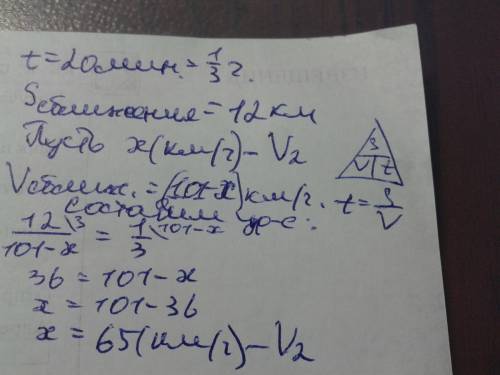 t = 20 мин. = 1/3 ч.
Sсближения = 12 км
Пусть x (км/ч) - V2
Vсближ. = (101-x) км/ч. t = S/V
S
V | t
составим ур-е:
12/(101-x) \3 = 1/3 \101-x
36 = 101 - x
x = 101 - 36
x = 65 (км/ч) - V2